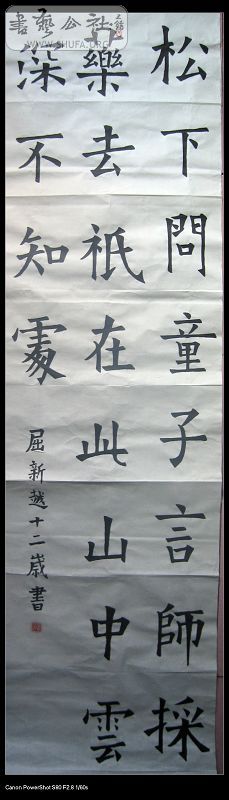 書藝公社
WWW.SHUFA.ORG
松下問童子言師採
藥去祇在此山中雲
深不知處
屈新越十二歲書
Canon PowerShot S80 F2.8 1/60s